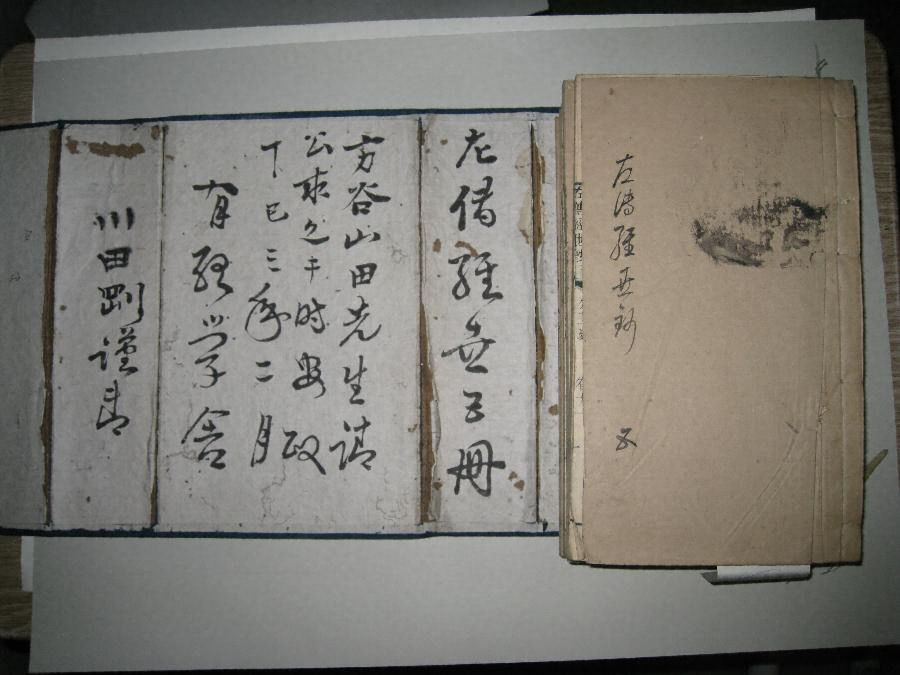 左傳經世鈔
五
左傳經世五冊
方谷山田先生請
公求之于時安政
丁巳三年二月
有終学舍
川田剛謹書